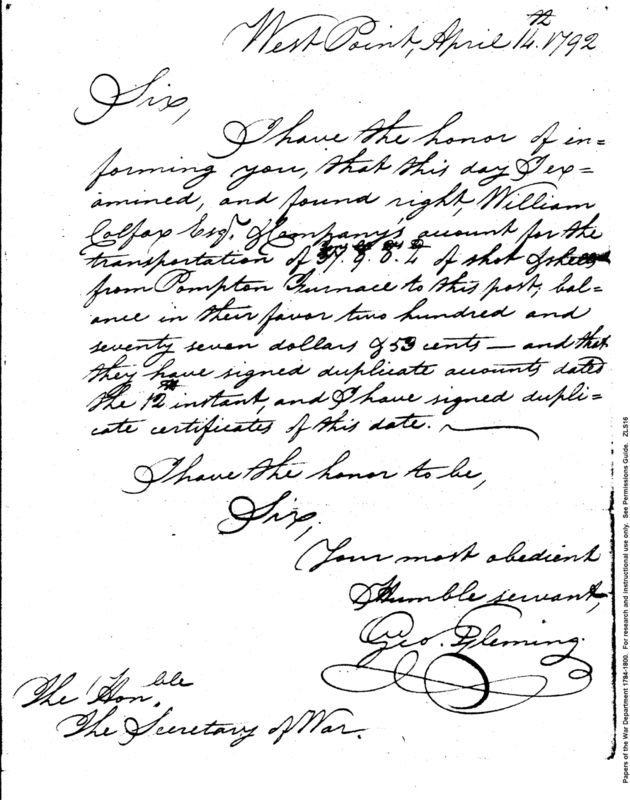 West Point, April 14.th 1792
Sir,
I have the honor of in=
forming you, that this day I ex=
amined, and found right, William
Colfax Esqr. & Company's account for the
transportation of 37. 9. 0. 4 of shot & shells
from Pompton Furnace to this post, bal=
ance in their favor two hundred and
seventy seven dollars & 53 cents — and that
they have signed duplicate accounts dated
the 12th instant, and I have signed dupli=
cate certificates of this date.
I have the honor to be,
Sir,
Your most obedient
& Humble servant,
Geo. Fleming.
The Hon.ble
The Secretary of War.
Papers of the War Department 1784-1800. For research and instructional use only. See Permissions Guide. ZLS16